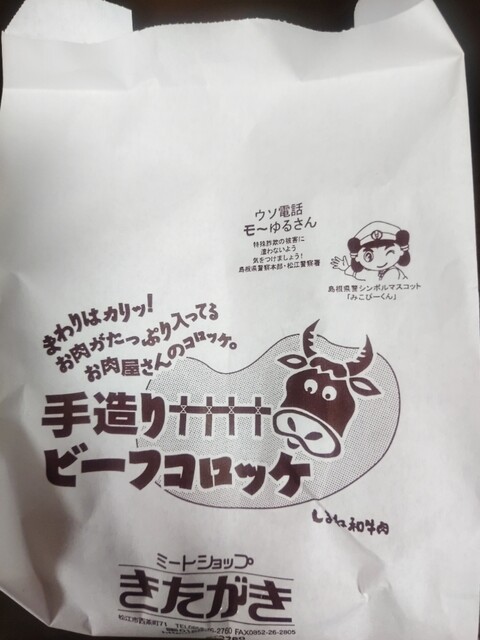 ウソ電話
モ〜ゆるさん
特殊詐欺の被害に
遭わないよう
気をつけましょう!
島根県警察本部・松江警察署
島根県警シンボルマスコット
「みこぴーくん」
まわりはカリッ!
お肉がたっぷり入ってる
お肉屋さんのコロッケ。
手造り
ビーフコロッケ
しまね和牛肉
ミートショップ
きたがき
FAX0852-26-2805